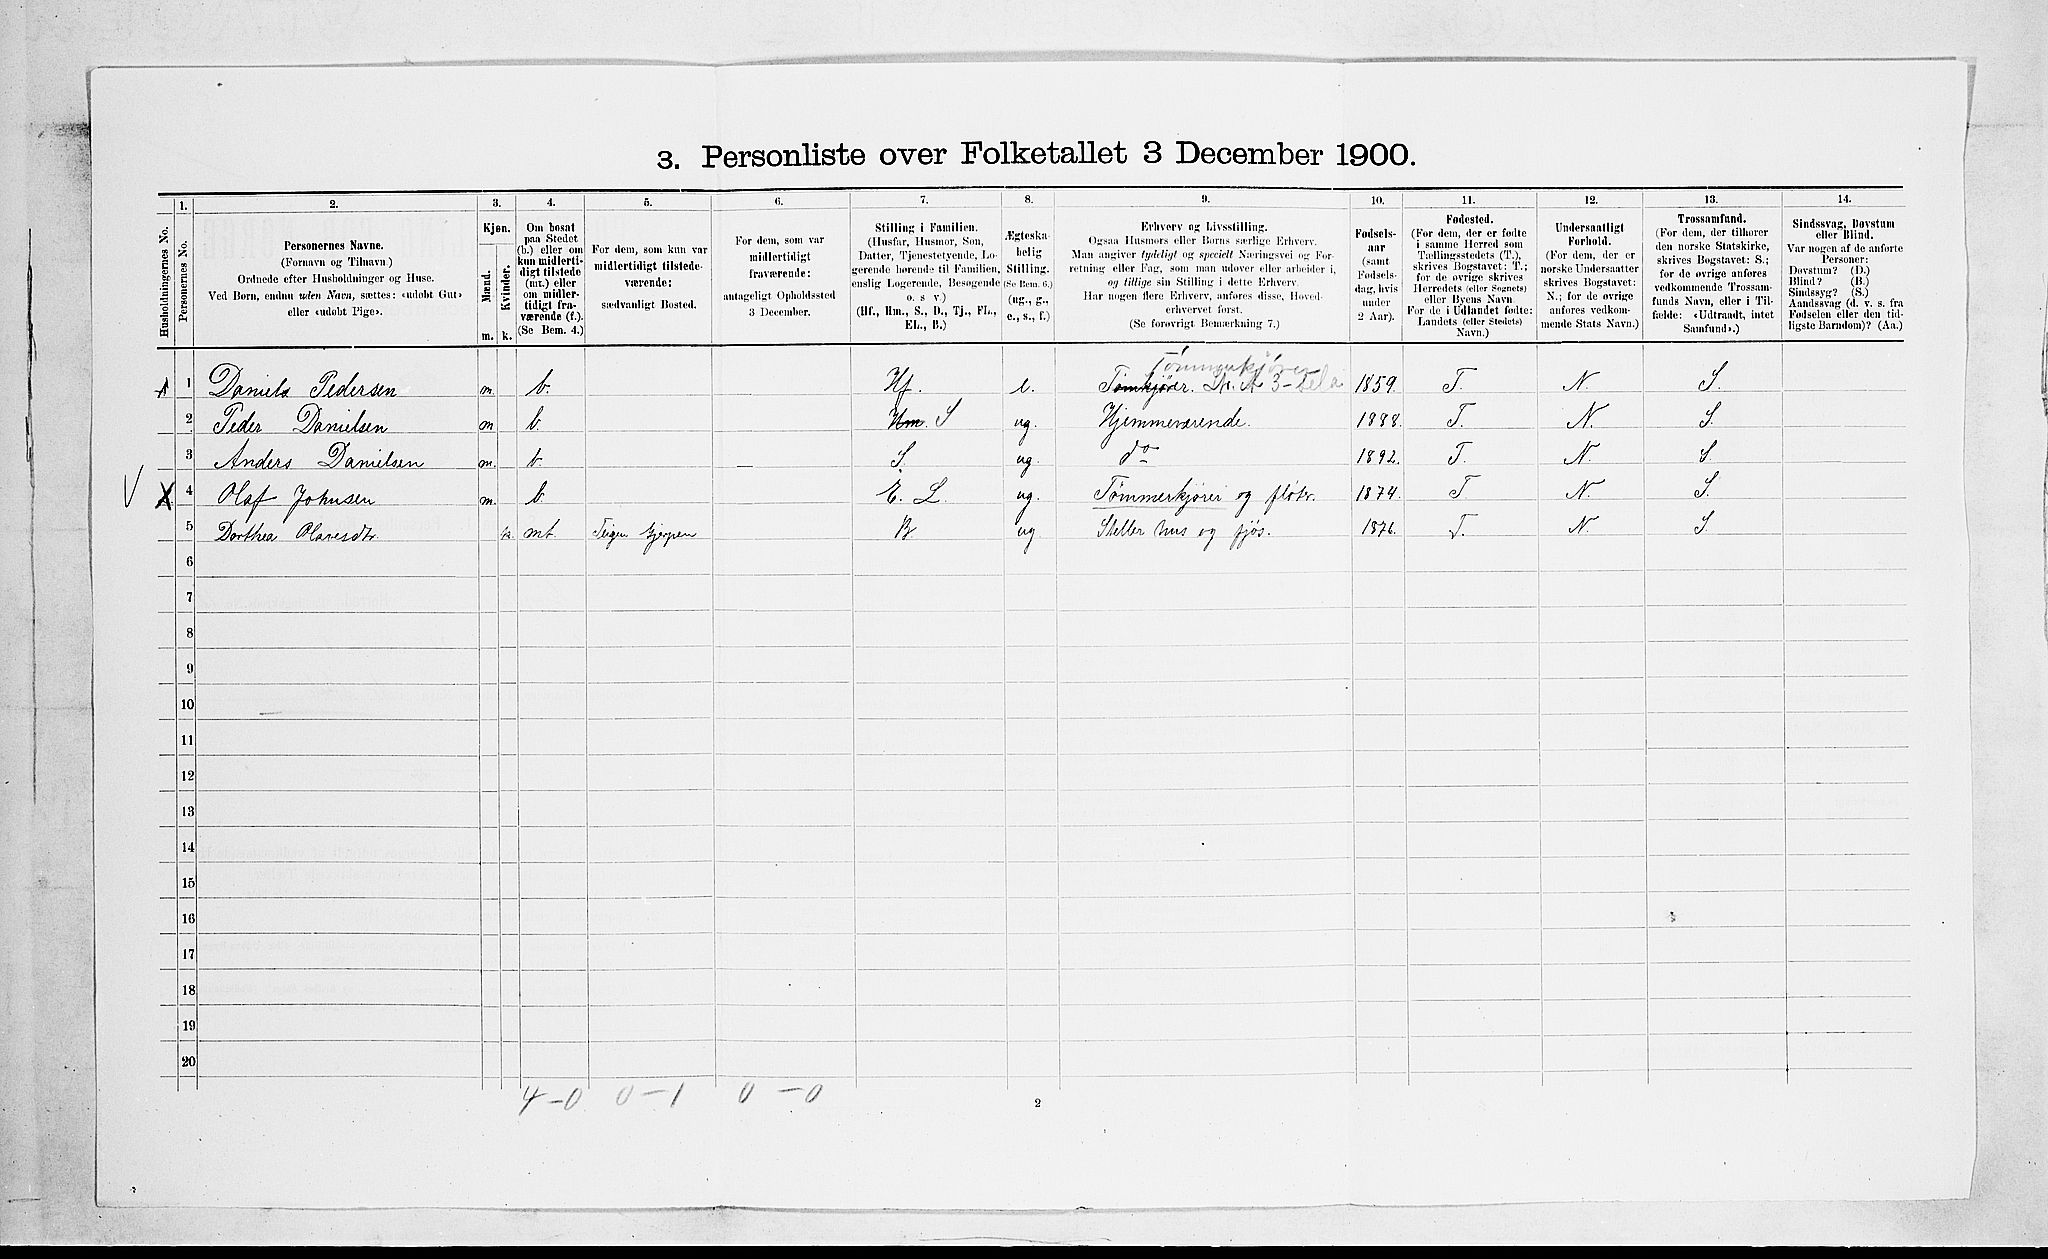 3. Personliste over Folketallet 3 December 1900.
1. 2. 3. 4. 5. 6. 7. 8. 9. 10. 11. 12. 13. 14.
Husholdningernes No.
Personernes No.
Personernes Navne.
(Fornavn og Tilnavn.)
Ordnede efter Husholdninger og Huse.
Ved Børn, endnu uden Navn, sættes: «udøbt Gut»
eller «udøbt Pige».
Kjøn.
Mænd.
Kvinder.
m. k.
Om bosat
paa Stedet
(b.) eller om
kun midlerti-
digt tilstede
(mt.) eller
om midler-
tidigt fra-
værende (f.).
(Se Bem. 4.)
For dem, som kun var
midlertidigt tilstede-
værende:
sædvanligt Bosted.
For dem, som var
midlertidigt
fraværende:
antageligt Opholdssted
3 December.
Stilling i Familien.
(Husfar, Husmor, Søn,
Datter, Tjenestetyende, Lo-
gerende hørende til Familien,
enslig Logerende, Besøgende
o. s v.)
(Hf., Hm., S., D., Tj., FL.,
EL., B.)
Ægteska-
belig
Stilling.
(Se Bem. 6.)
(ug., g.,
e., s., f.)
Erhverv og Livsstilling.
Ogsaa Husmors eller Børns særlige Erhverv.
Man angiver tydeligt og specielt Næringsvei og For-
retning eller Fag, som man udøver eller arbeider i,
og tillige sin Stilling i dette Erhverv.
Har nogen flere Erhverv, anføres disse, Hoved-
erhvervet først.
(Se forøvrigt Bemærkning 7.)
Fødsels-
aar
(samt
Fødsels-
dag, hvis
under
2 Aar).
Fødested.
(For dem, der er fødte
i samme Herred som
Tællingsstedets (T.),
skrives Bogstavet: T.;
for de øvrige skrives
Herredets (eller Sognets)
eller Byens Navn.
For de i Udlandet fødte:
Landets (eller Stedets)
Navn.)
Undersaatligt
Forhold.
(For dem, der er
norske Undersaatter
skrives Bogstavet:
N.; for de øvrige
anføres vedkom-
mende Stats Navn.)
Trossamfund.
(For dem, der tilhører
den norske Statskirke,
skrives Bogstavet: S.;
for de øvrige anføres
vedkommende Trossam-
funds Navn, eller i Til-
fælde: «Udtraadt, intet
Samfund».)
Sindssvag, Døvstum
eller Blind.
Var nogen af de anførte
Personer:
Døvstum? (D.)
Blind? (B.)
Sindssyg? (S.)
Aandssvag (d. v. s. fra
Fødselen eller den tid-
ligste Barndom)? (Aa.)
Tømmerkjører
1 Daniels Pedersen m. b. Hf. e. Tømkjører. 1859. T. N. S.
2 Peder Danielsen m b. Hm. S ug. Hjemmeværende. 1888. T. N. S.
3 Anders Danielsen m. b. — S. ug. do 1892. T. N. S.
V X 4 Olaf Johnsen m. b. E. L. ug. Tømmerkjører og fløter. 1874. T N. S.
5 Dorthea Olavesdtr. k. mt. Teigen Gjerpen B ug Steller hus og fjøs. 1876. T. N. S
6
7
8
9
10
11
12
13
14
15
16
17
18
19
20
4 – 0 0 – 1 0 – 0
2